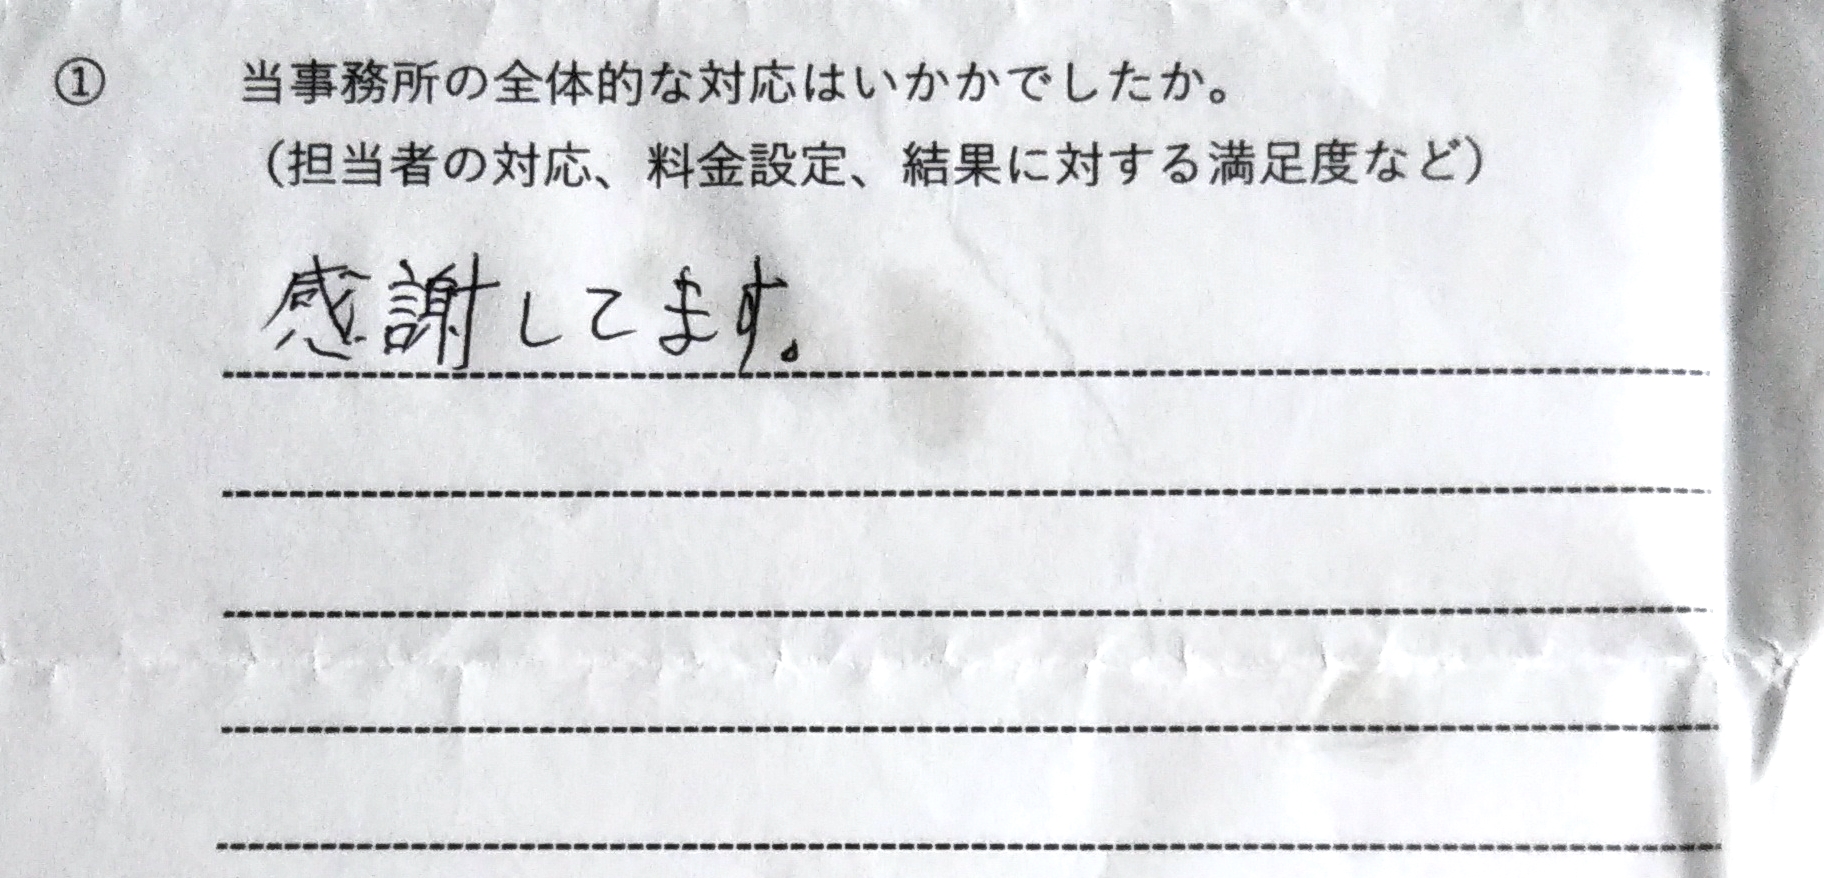 ① 当事務所の全体的な対応はいかかでしたか。
（担当者の対応、料金設定、結果に対する満足度など）
感謝してます。